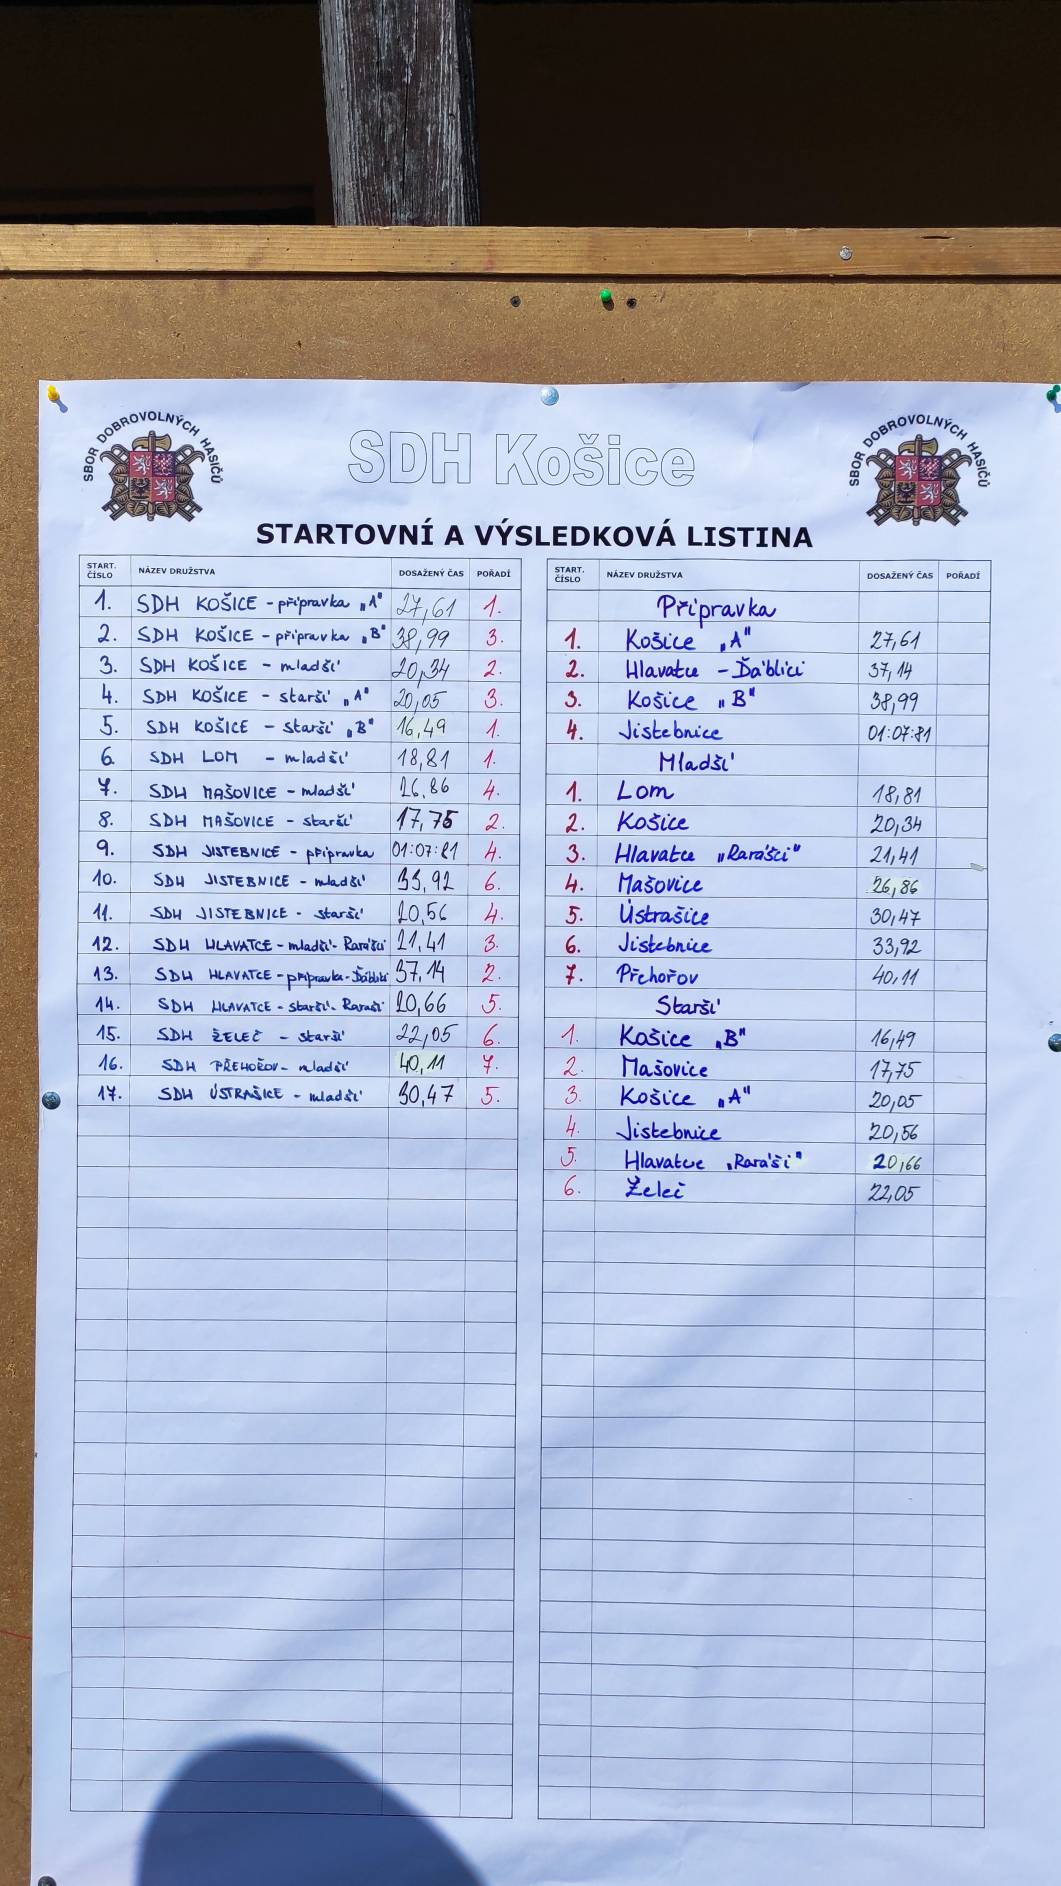 SBOR DOBROVOLNÝCH HASIČŮ
SDH Košice
SBOR DOBROVOLNÝCH HASIČŮ
STARTOVNÍ A VÝSLEDKOVÁ LISTINA
START. ČÍSLO NÁZEV DRUŽSTVA DOSAŽENÝ ČAS POŘADÍ
1. SDH KOŠICE - přípravka „A" 27,61 1.
2. SDH KOŠICE - přípravka „B" 38,99 3.
3. SDH KOŠICE - mladší 20,34 2.
4. SDH KOŠICE - starší „A" 20,05 3.
5. SDH KOŠICE - starší „B" 16,49 1.
6. SDH LOM - mladší 18,81 1.
7. SDH MAŠOVICE - mladší 26,86 4.
8. SDH MAŠOVICE - starší 17,75 2.
9. SDH JISTEBNICE - přípravka 01:07:81 4.
10. SDH JISTEBNICE - mladší 33,92 6.
11. SDH JISTEBNICE - starší 20,56 4.
12. SDH HLAVATCE - mladší - Rarášci 21,41 3.
13. SDH HLAVATCE - přípravka - Ďáblíci 37,14 2.
14. SDH HLAVATCE - starší - Raráši 20,66 5.
15. SDH ŽELEČ - starší 22,05 6.
16. SDH PŘEHOŘOV - mladší 40,11 7.
17. SDH ÚSTRAŠICE - mladší 30,47 5.
START. ČÍSLO NÁZEV DRUŽSTVA DOSAŽENÝ ČAS POŘADÍ
Přípravka
1. Košice „A" 27,61
2. Hlavatce - Ďáblíci 37,14
3. Košice „B" 38,99
4. Jistebnice 01:07:81
Mladší
1. Lom 18,81
2. Košice 20,34
3. Hlavatce „Rarášci" 21,41
4. Mašovice 26,86
5. Ústrašice 30,47
6. Jistebnice 33,92
7. Přehořov 40,11
Starší
1. Košice „B" 16,49
2. Mašovice 17,75
3. Košice „A" 20,05
4. Jistebnice 20,56
5. Hlavatce „Raráši" 20,66
6. Želeč 22,05